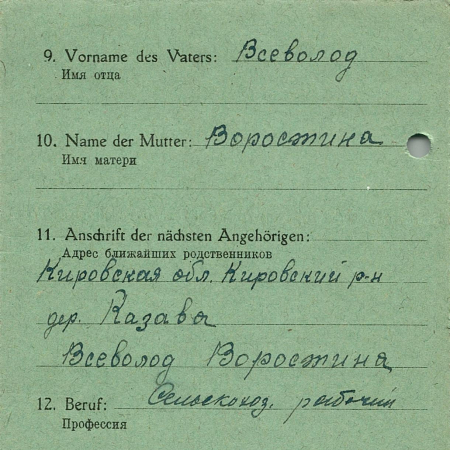 9. Vorname des Vaters: Всеволод
Имя отца
10. Name der Mutter: Воростина
Имя матери
11. Anschrift der nächsten Angehörigen:
Адрес ближайших родственников
Кировская обл. Кировский р-н
дер. Казавы
Всеволод Воростина
12. Beruf: Сельскохоз. рабочий
Профессия